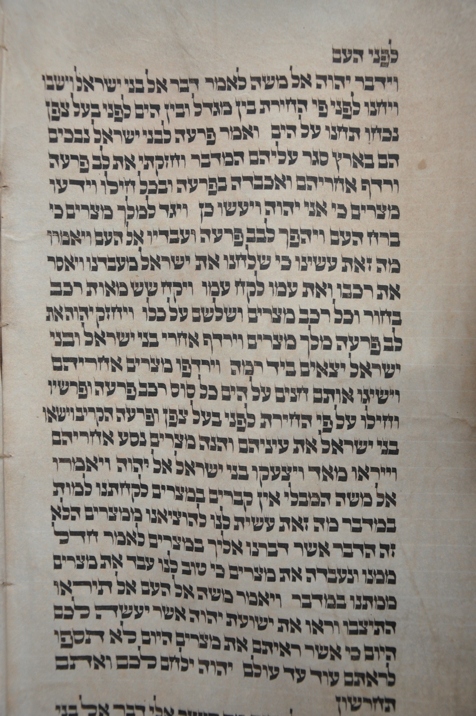 לפני העם
וידבר יהוה אל משה לאמר דבר אל בני ישראל וישבו
ויחנו לפני פי החירת בין מגדל ובין הים לפני בעל צפן
נכחו תחנו על הים ואמר פרעה לבני ישראל נבכים
הם בארץ סגר עליהם המדבר וחזקתי את לב פרעה
ורדף אחריהם ואכבדה בפרעה ובכל חילו וידעו
מצרים כי אני יהוה ויעשו כן ויגד למלך מצרים כי
ברח העם ויהפך לבב פרעה ועבדיו אל העם ויאמרו
מה זאת עשינו כי שלחנו את ישראל מעבדנו ויאסר
את רכבו ואת עמו לקח עמו ויקח שש מאות רכב
בחור וכל רכב מצרים ושלשם על כלו ויחזק יהוה את
לב פרעה מלך מצרים וירדף אחרי בני ישראל ובני
ישראל יצאים ביד רמה וירדפו מצרים אחריהם
וישיגו אותם חנים על הים כל סוס רכב פרעה ופרשיו
וחילו על פי החירת לפני בעל צפן ופרעה הקריב וישאו
בני ישראל את עיניהם והנה מצרים נסע אחריהם
וייראו מאד ויצעקו בני ישראל אל יהוה ויאמרו
אל משה המבלי אין קברים במצרים לקחתנו למות
במדבר מה זאת עשית לנו להוציאנו ממצרים הלא
זה הדבר אשר דברנו אליך במצרים לאמר חדל
ממנו ונעבדה את מצרים כי טוב לנו עבד את מצרים
ממתנו במדבר ויאמר משה אל העם אל תיראו
התיצבו וראו את ישועת יהוה אשר יעשה לכם
היום כי אשר ראיתם את מצרים היום לא תספו
לראתם עוד עד עולם יהוה ילחם לכם ואתם
תחרשון
אלי דבר אל בני